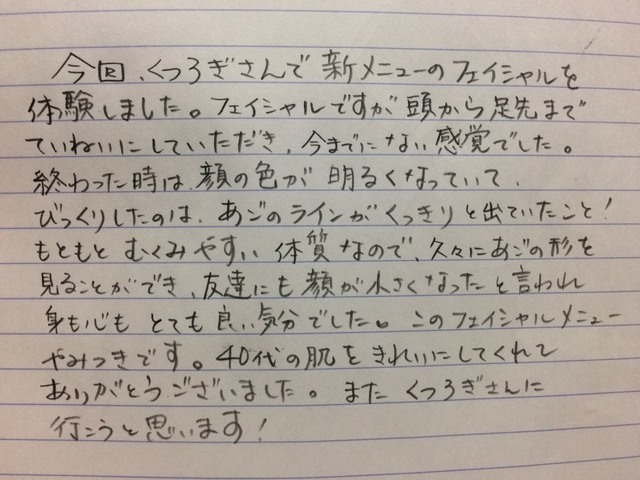 今回、くつろぎさんで新メニューのフェイシャルを
体験しました。フェイシャルですが頭から足先まで
ていねいにしていただき、今までにない感覚でした。
終わった時は、顔の色が明るくなっていて、
びっくりしたのは、あごのラインがくっきりと出ていたこと！
もともとむくみやすい体質なので、久々にあごの形を
見ることができ、友達にも顔が小さくなったと言われ
身も心もとても良い気分でした。このフェイシャルメニュー
やみつきです。40代の肌をきれいにしてくれて
ありがとうございました。またくつろぎさんに
行こうと思います！